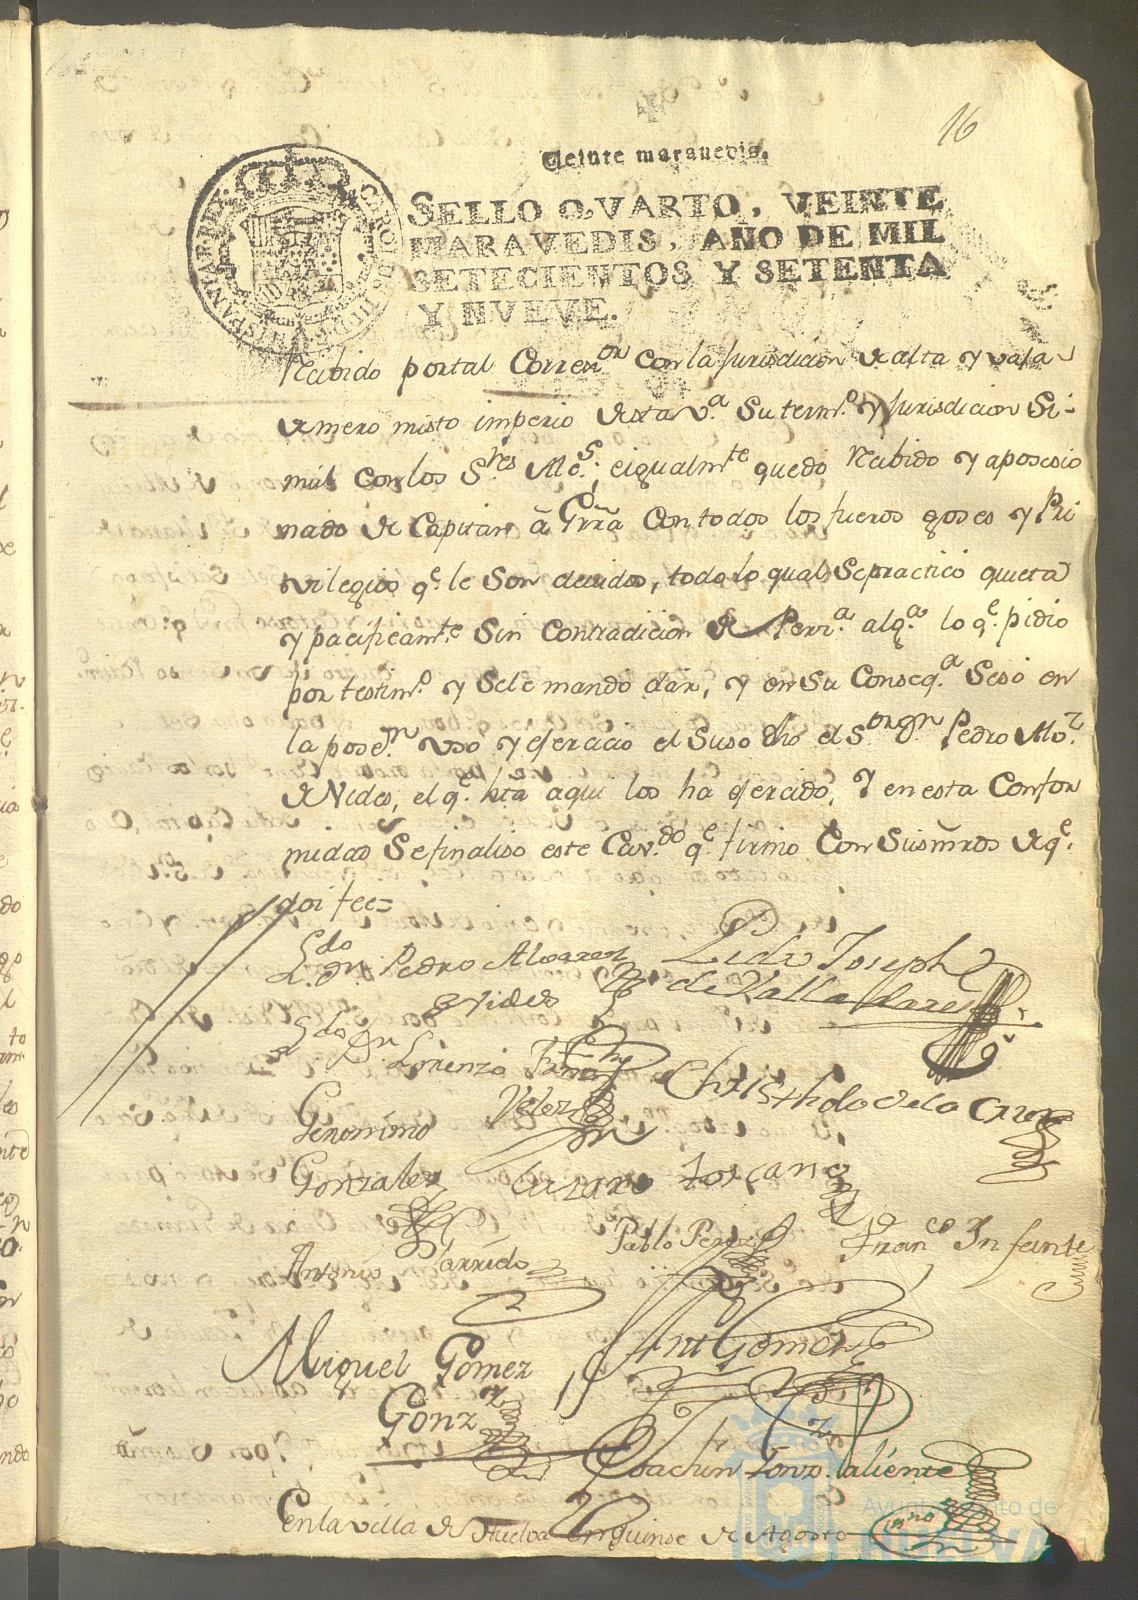 16
Veinte maravedis.
SELLO QVARTO, VEINTE
MARAVEDIS, AÑO DE MIL
SETECIENTOS Y SETENTA
Y NVEVE.
Recibido portal Correxor con la Jurisdicion de alta y vaxa
de mero misto imperio de esta Va. su termo. y Jurisdicion Si-
mul con los Sres. Alcs. e igualmte quedo Recibido y aposesio
nado de Capitan â Grrã Con todos los fueros goses y Pri
vilegios qe. le Son devidos, todo lo qual, Se practicó quieta
y pacificamte Sin Contradicion de Perzª. algª. lo qe. pidio
por testimo. y Sele mando dar, y en su Conseqª. Sesó en
la posesn. uso y ejercicio el Suso dho el Sor. Dn. Pedro Alvz.
de Vides, el qe. hta aqui los ha ejercido, Y en esta Confor
midad Se finaliso este Cavdo. qe. firmo Con Sus mrds de qe.
doi fee=
Ldo. Dn. Pedro Alvarez
de Vides
Pedro Joseph
de Valladares
Ldo. Dn. Lorenzo
Velez
Christhobal de la Cruz
Geronimo
Gonzalez
Lazaro Toscano
Antonio Garrido
Pablo Perez
Franco. Infante
Miguel Gomez
Gonzz
Ant Gomez
Joachin Gonz. Valiente
En la villa de Huelva en quinse de Agosto
Ayuntamiento de
HUELVA